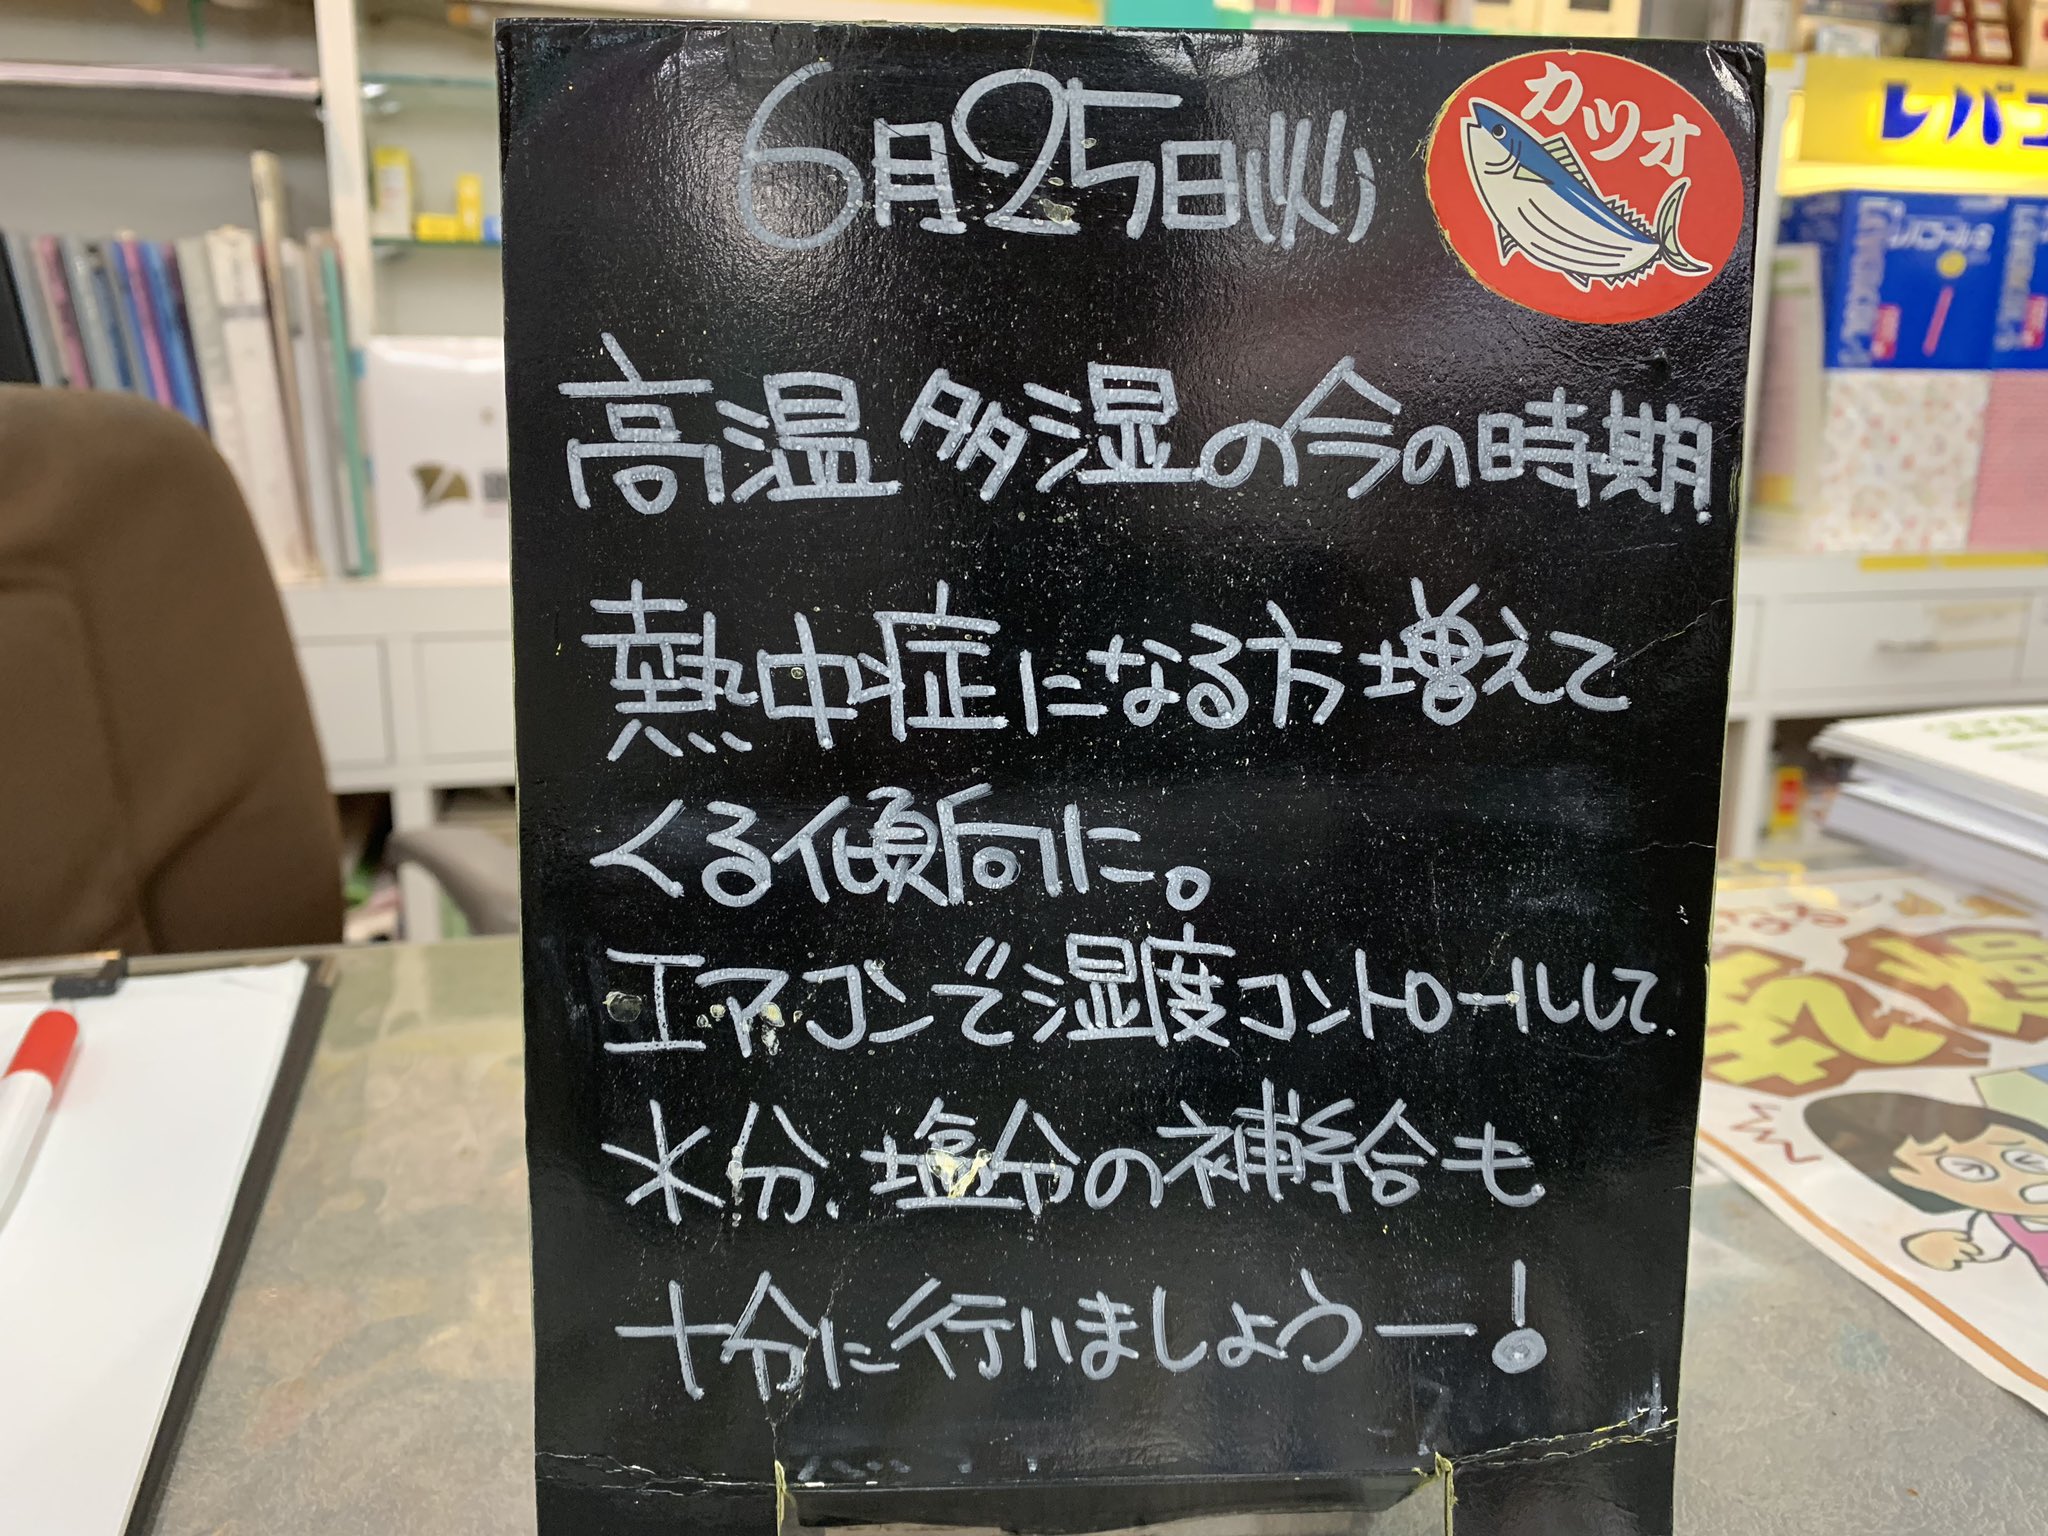 6月25日(火)
カツオ
高温多湿の今の時期
熱中症になる方増えて
くる傾向に。
エアコンで湿度コントロールして、
水分、塩分の補給も
十分に行いましょうー!
レバコ
レバコールS